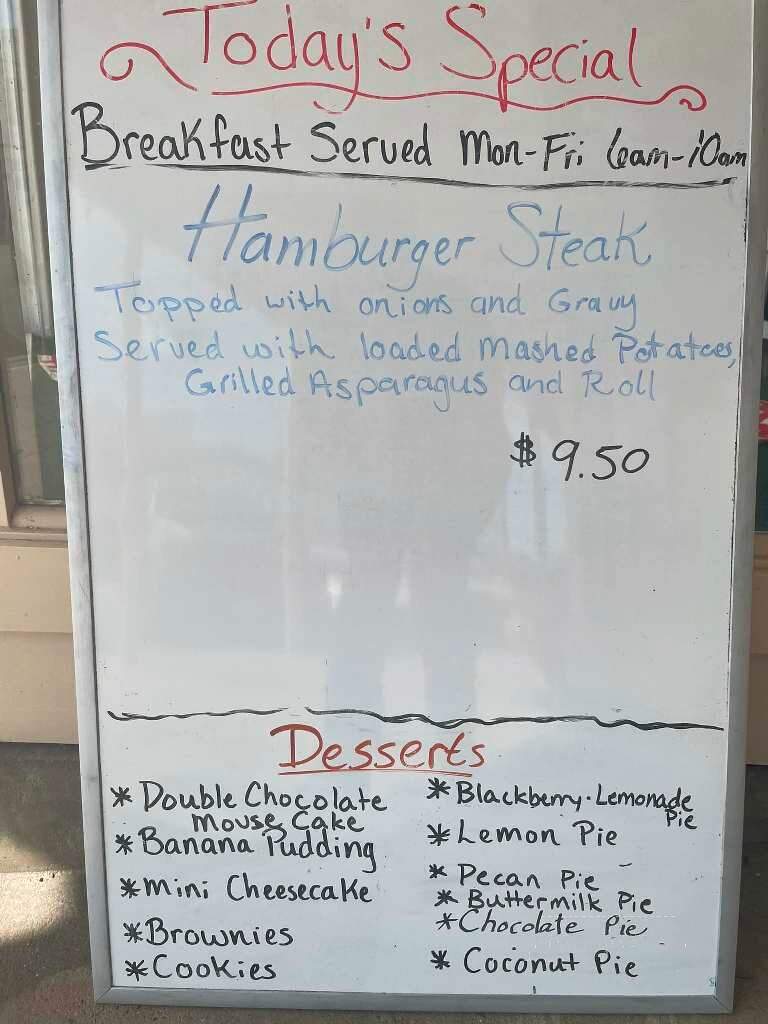 Today's Special
Breakfast Served Mon-Fri 6am-10am
Hamburger Steak
Topped with onions and Gravy
Served with loaded Mashed Potatoes,
Grilled Asparagus and Roll
$ 9.50
Desserts
* Double Chocolate
Mouse Cake
* Banana Pudding
* Mini Cheesecake
* Brownies
* Cookies
* Blackberry·Lemonade
Pie
* Lemon Pie
* Pecan Pie
* Buttermilk Pie
* Chocolate Pie
* Coconut Pie